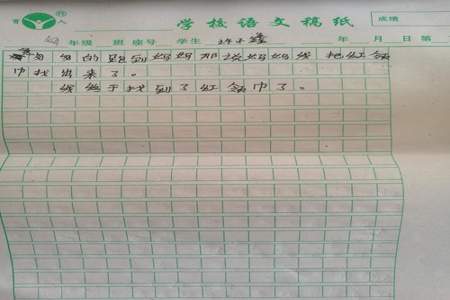 育人
学校语文稿纸
成绩
年级 班 座号 学生 年 月 日 第
的跑到妈妈那 妈妈 把红领
巾找出来了。
终于找到了红领巾了。